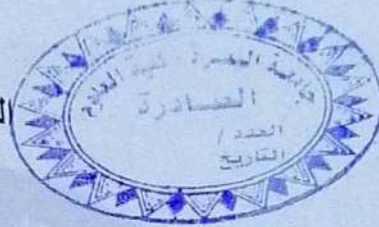 جامعة البصرة كلية العلوم
الصادرة
العدد /
التاريخ
ال